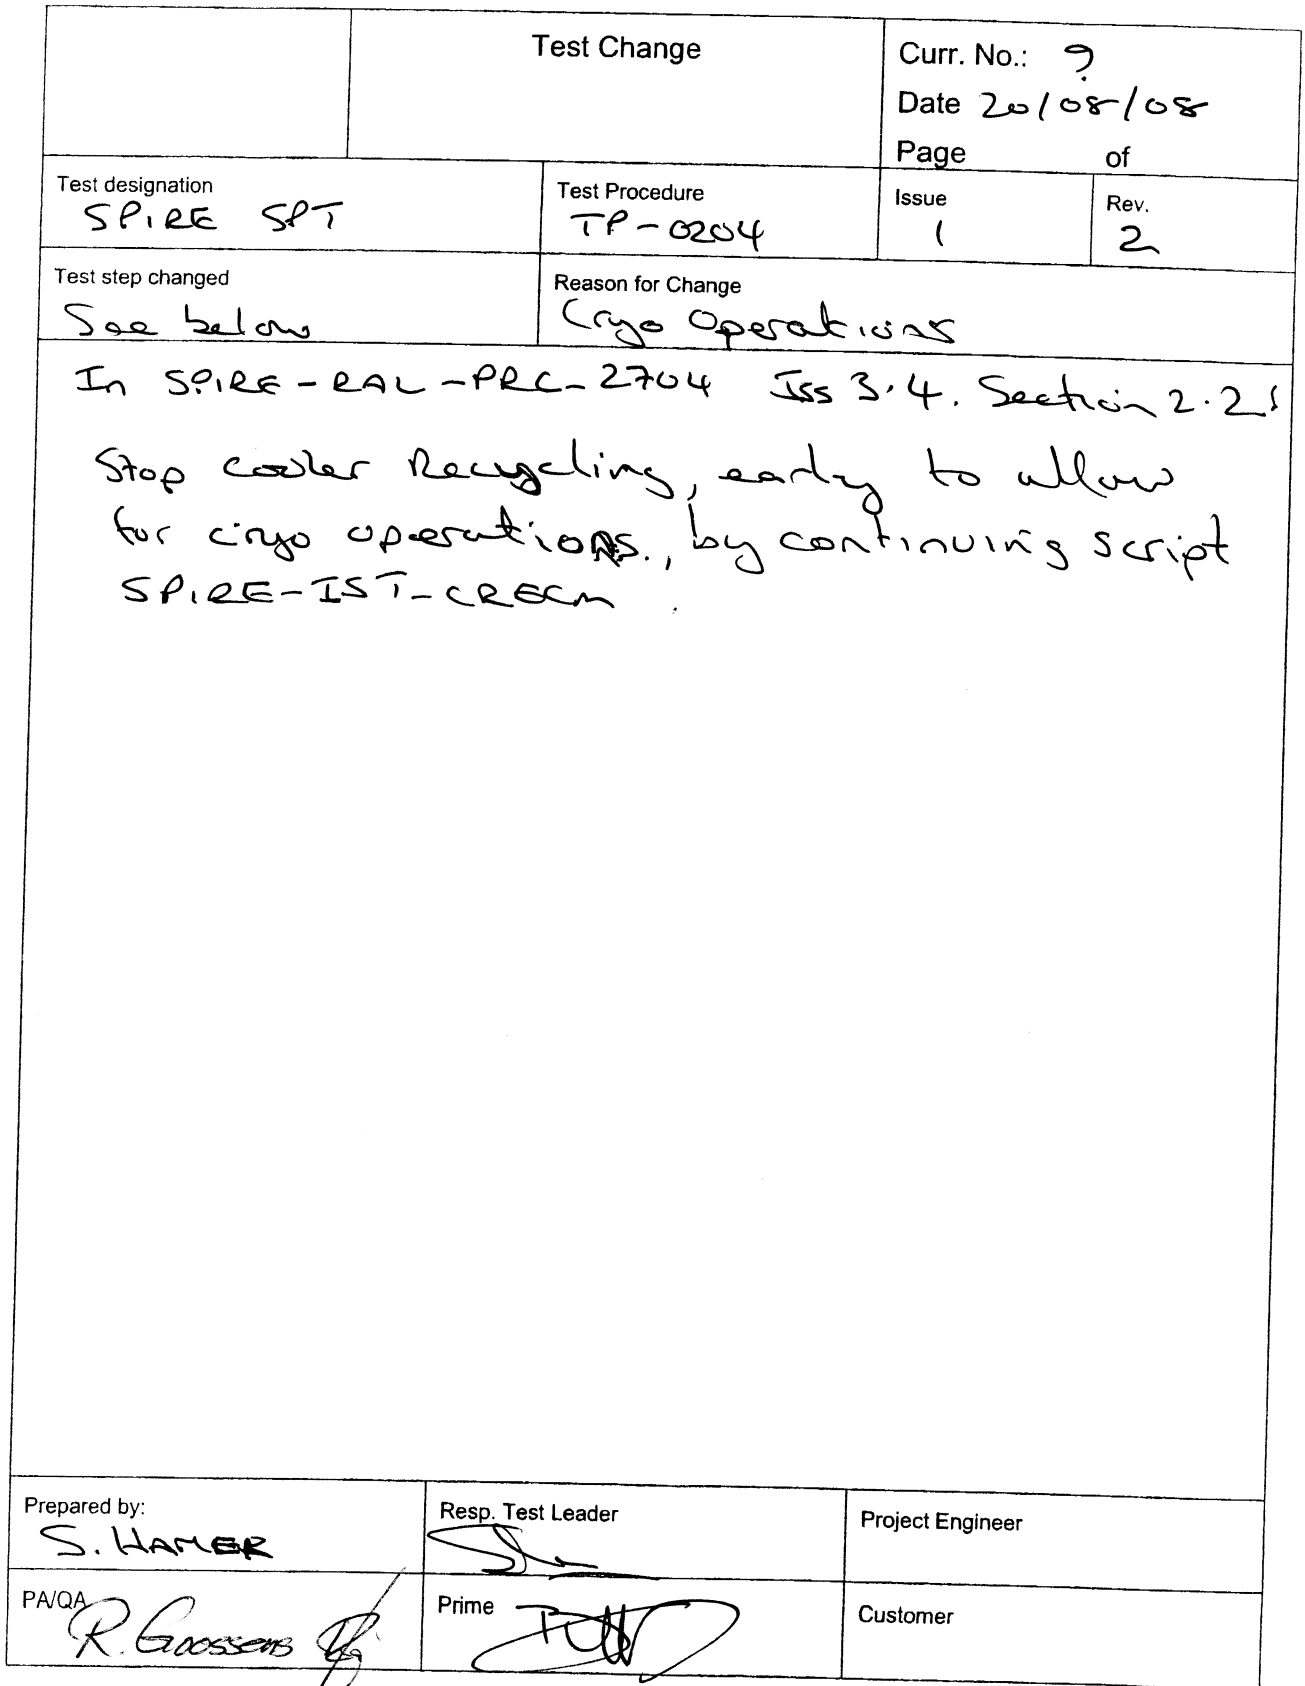 Test Change
Curr. No.: ?
Date 20/08/08
Page of
Test designation
SPIRE SPT
Test Procedure
TP-0204
Issue
1
Rev.
2
Test step changed
See below
Reason for Change
Cryo Operations
In SPIRE-RAL-PRC-2704 Iss 3.4. Section 2.2:
Stop cooler Recycling, early to allow
for cryo operations., by continuing script
SPIRE-IST-CRECM.
Prepared by:
S. HAMER
Resp. Test Leader
Project Engineer
PA/QA
R. Goossens
Prime
Customer